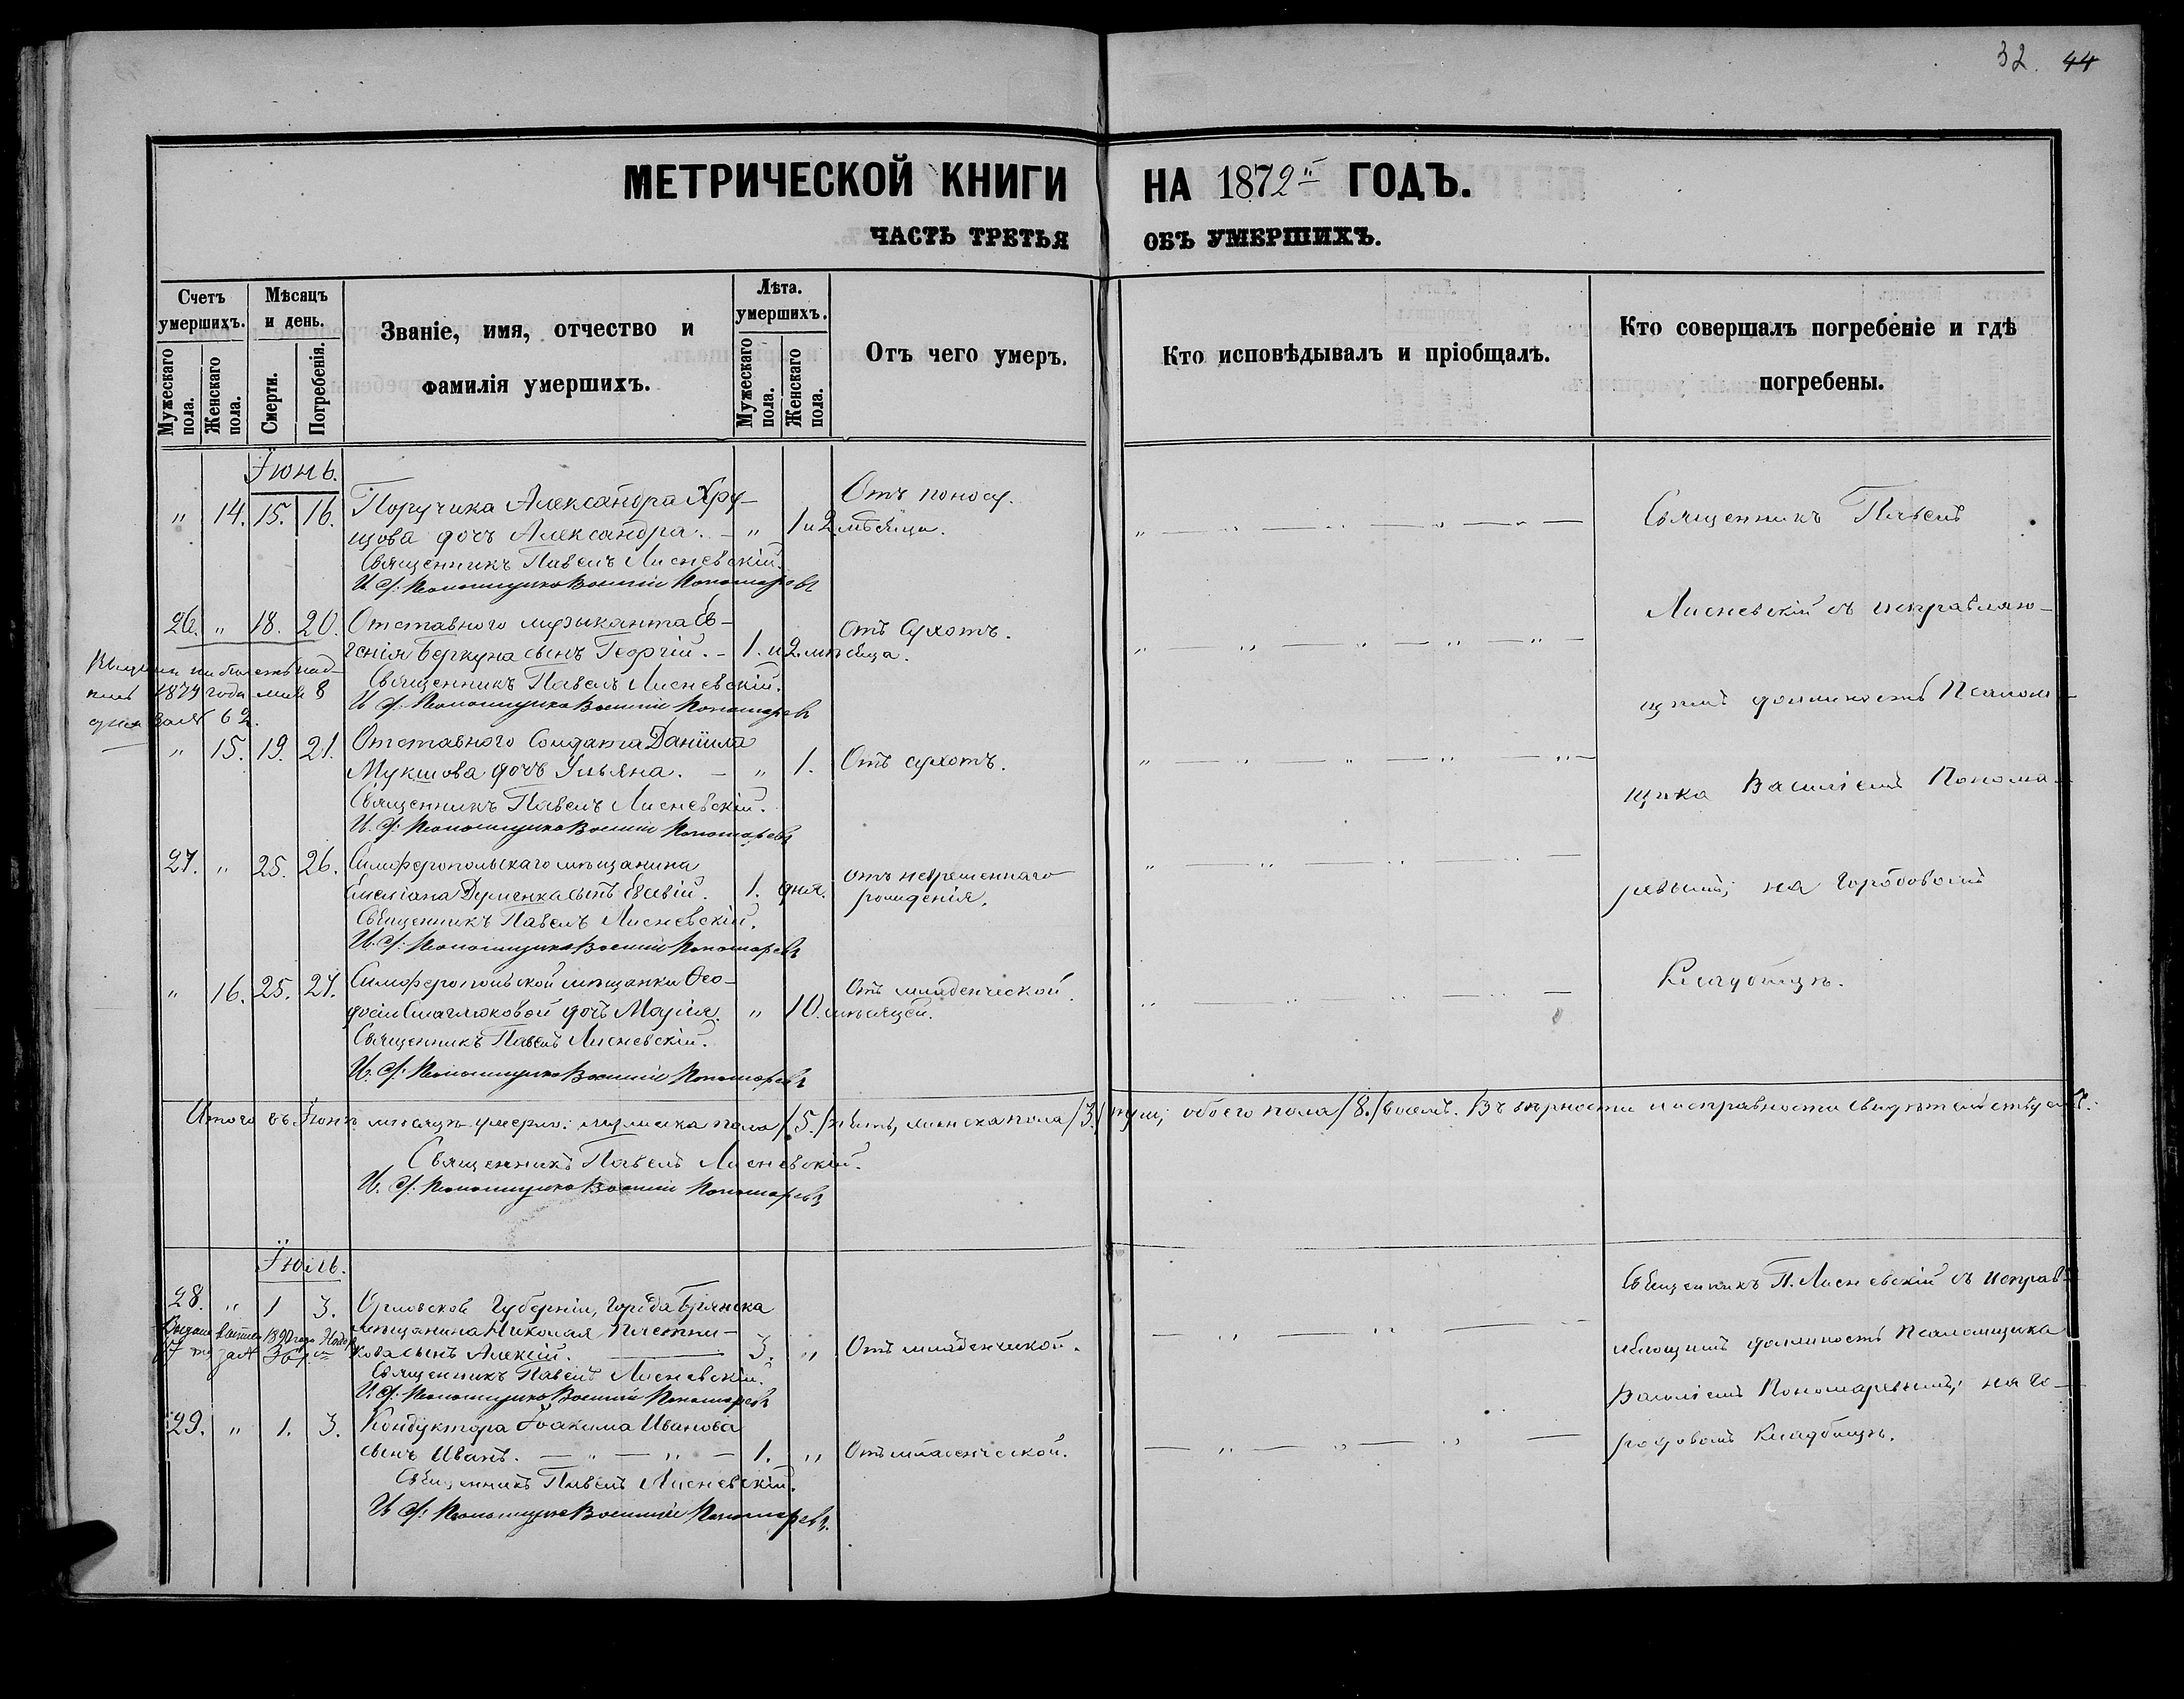 32. 44
МЕТРИЧЕСКОЙ КНИГИ НА 1872й ГОДЪ.
ЧАСТЬ ТРЕТЬЯ ОБЪ УМЕРШИХЪ.
Счетъ умершихъ.
Мужескаго пола.
Женскаго пола.
Мѣсяцъ и день.
Смерти.
Погребенія.
Званіе, имя, отчество и
фамилія умершихъ.
Лѣта. умершихъ.
Мужескаго пола.
Женскаго пола.
Отъ чего умеръ.
Кто исповѣдывалъ и пріобщалъ.
Кто совершалъ погребеніе и гдѣ
погребены.
Іюнь.
„ 14. 15. 16. Поручика Александра Хру-
щова дочъ Александра. — „ 1 и 2 мѣсяца. Отъ поносу.
Священникъ Павелъ Лисневскій.
И. д: Псаломщика Василій Пономаревъ
26. „ 18. 20. Отставного музыканта Ев-
генія Беркуна сынъ Георгій. — 1. и 2. мѣсяца. Отъ Сухотъ.
Священникъ Павелъ Лисневскій.
И. д: Псаломщика Василій Пономаревъ
1874 года мая 8
дня за № 62.
„ 15. 19. 21. Отставного Солдата Даніила
Мукшова дочъ Ульяна. — „ 1. Отъ сухотъ.
Священникъ Павелъ Лисневскій.
И. д: Псаломщика Василій Пономаревъ
27. „ 25. 26. Симферопольскаго мѣщанина
Емеліана Дерменжа сынъ Евсевій. 1. дня. отъ неврeменнаго рожденія.
Священникъ Павелъ Лисневскій.
И. д: Псаломщика Василій Пономаревъ
„ 16. 25. 27. Симферопольской мѣщанки Ѳео-
досіи Смаглюковой дочъ Марія. „ 10. мѣсяцей. Отъ младенческой.
Священникъ Павелъ Лисневскій.
И. д: Псаломщика Василій Пономаревъ
Священникъ Павелъ
Лисневскій съ исправляю-
щимъ должность Псалом-
щика Василіемъ Понома-
ревымъ; на Городовомъ
Кладбищѣ.
Итого въ Іюнѣ мѣсяцѣ умерло: мужеска пола /5./ пять, женска пола /3./ три; обоего пола /8./ восемь. Въ вѣрности и исправности свидѣтельствуемъ:
Священникъ Павелъ Лисневскій.
И. д: Псаломщика Василій Пономаревъ
Іюль.
28. „ 1 3. Орловской Губерніи, города Брянска
мѣщанина Николая Плетни-
кова сынъ Алексій. — 3. „ Отъ младенческой.
Священникъ Павелъ Лисневскій.
И. д: Псаломщика Василій Пономаревъ
1890 года
29. „ 1. 3. Кондуктора Іоакима Иванова
сынъ Иванъ. — „ — „ — 1. „ Отъ младенческой.
Священникъ Павелъ Лисневскій.
И. д: Псаломщика Василій Пономаревъ.
Священникъ П. Лисневскій съ исправ-
ляющимъ должность псаломщика
Василіемъ Пономаревымъ; на Го-
родовомъ Кладбищѣ.